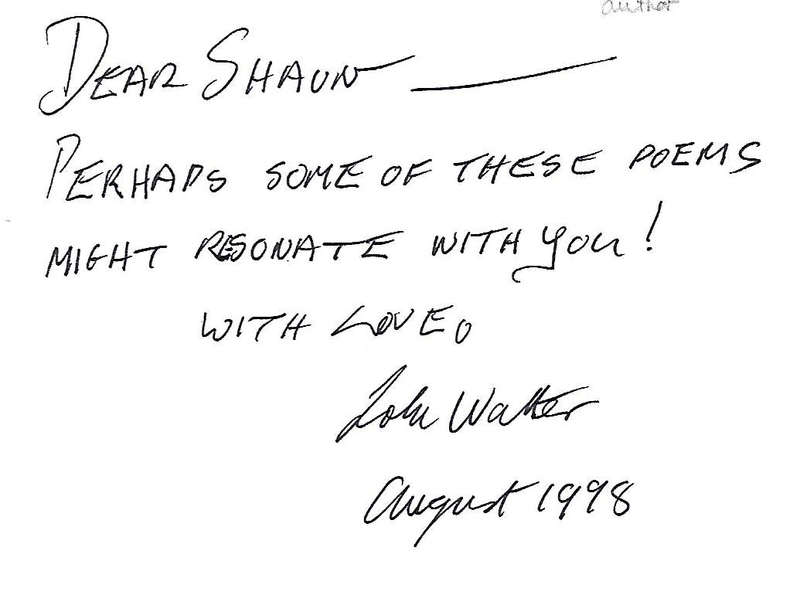 author
DEAR SHAUN —
PERHAPS SOME OF THESE POEMS
MIGHT RESONATE WITH YOU!
WITH LOVE,
John Walter
August 1998